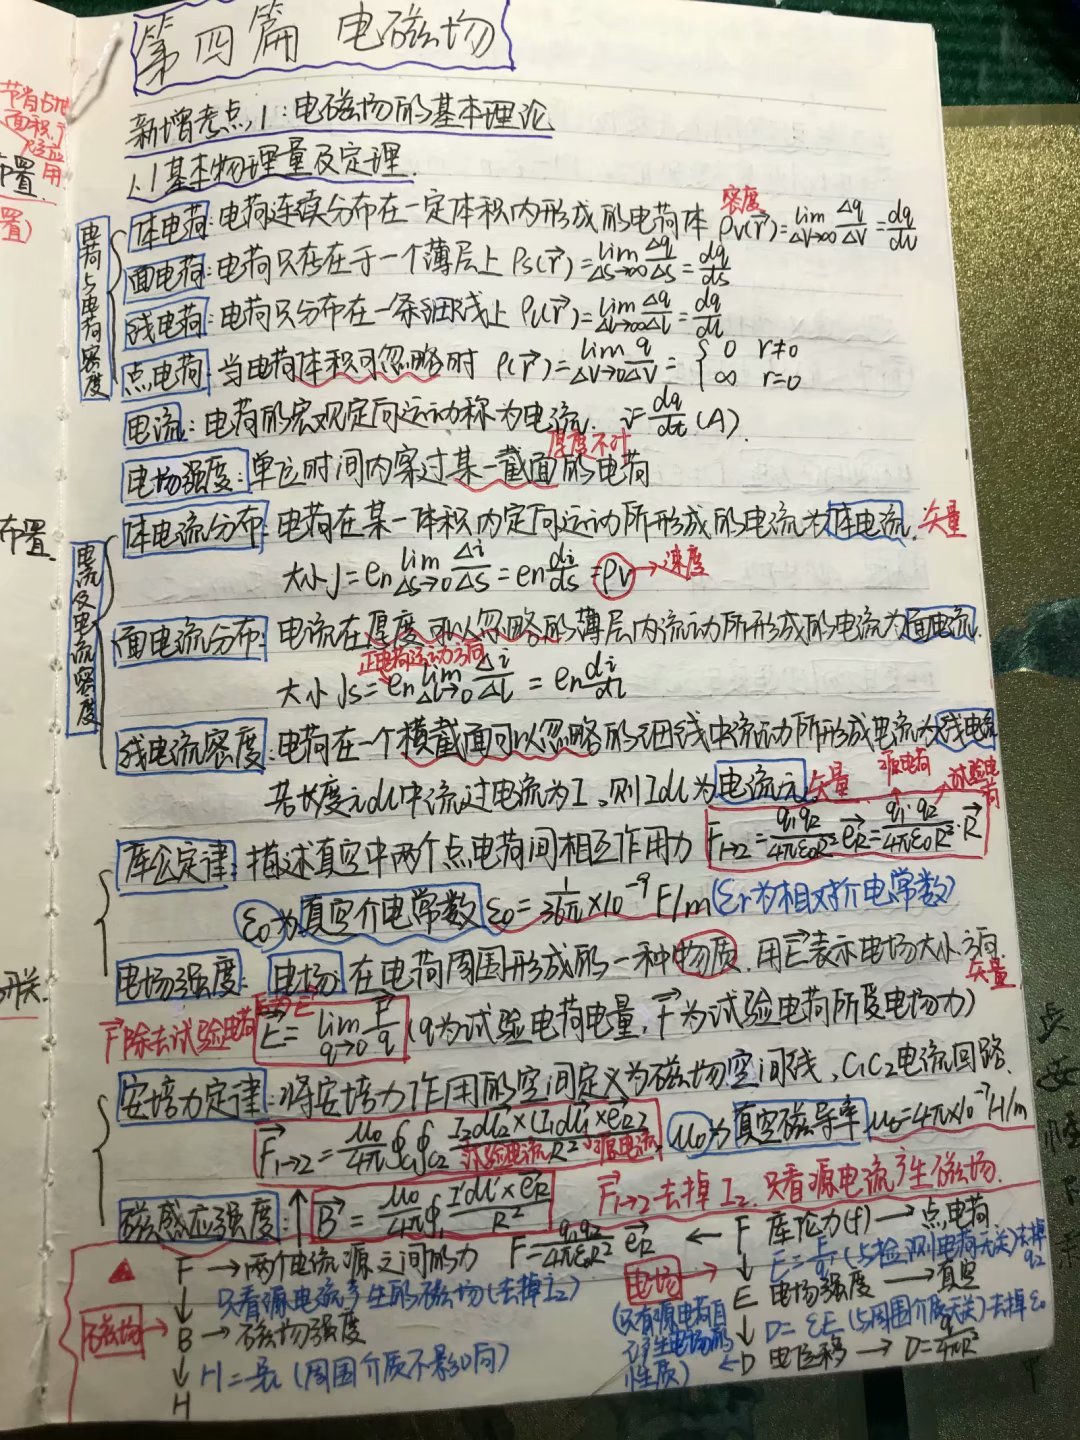 第四篇 电磁场
新增考点1:电磁场的基本理论
1.1基本物理量及定理
电荷与电荷密度
体电荷:电荷连续分布在一定体积内形成的电荷体密度 ρv(r⃗)=lim ΔV→∞ Δq/ΔV=dq/dv
面电荷:电荷只存在于一个薄层上 ρs(r⃗)=lim Δs→∞ Δq/Δs=dq/ds
线电荷:电荷只分布在一条细线上 ρl(r⃗)=lim Δl→∞ Δq/Δl=dq/dl
点电荷:当电荷体积可忽略时 ρ(r⃗)=lim ΔV→0 q/ΔV={0 r≠0
∞ r=0
电流:电荷的宏观定向运动称为电流. i=dq/dt(A).
厚度不计
电场强度:单位时间内穿过某一截面的电荷
电流及电流密度
体电流分布:电荷在某一体积内定向运动所形成的电流为体电流. 矢量
大小J=en lim Δs→0 Δi/Δs=en di/ds=ρv→速度
面电流分布:电流在厚度可以忽略的薄层内流动所形成的电流为面电流.
正电荷运动方向
大小Js=en lim Δl→0 Δi/Δl=en di/dl
线电流密度:电荷在一个横截面可以忽略的细线中流动所形成电流为线电流
若长度元dl中流过电流为I,则Idl为电流元 矢量 源电荷 试验电荷
库仑定律:描述真空中两个点电荷间相互作用力 F⃗1→2=q1q2/4πε0R² e⃗R=q1·q2/4πε0R³·R⃗
ε0为真空介电常数 ε0=1/36π×10⁻⁹F/m(εr为相对介电常数)
电场强度: 电场:在电荷周围形成的一种物质.用E⃗表示电场大小.方向
矢量
F⃗除去试验电荷 E⃗=lim q→0 F⃗/q(q为试验电荷电量,F⃗为试验电荷所受电场力)
安培力定律:将安培力作用的空间定义为磁场空间线,C1C2电流回路.
F⃗1→2=μ0/4π∮c1∮c2 I2dl⃗2×(I1dl⃗1×e⃗R)/R² μ0为真空磁导率 μ0=4π×10⁻⁷H/m
试验电流 源电流
F⃗1→2去掉I2.只看源电流产生磁场.
磁感应强度:↑ B⃗=μ0/4π∮Idl×e⃗R/R²
▲ F→两个电流源之间的力 F=q1q2/4πε0R² e⃗R ← F 库伦力(f)→点电荷
只看源电流产生的磁场(去掉I2) E=F/q(与检测电荷无关)去掉q2
电场→ E 电场强度→真空
磁场→ B→磁场强度
(只看源电荷自己产生电场的性质) D=εE(与周围介质无关)去掉ε0
↓ D 电位移→D=q/4πR²
H=B/μ(周围介质不影响)
H
节省占地
面积,
应用
布置
置)
布置.
开关.